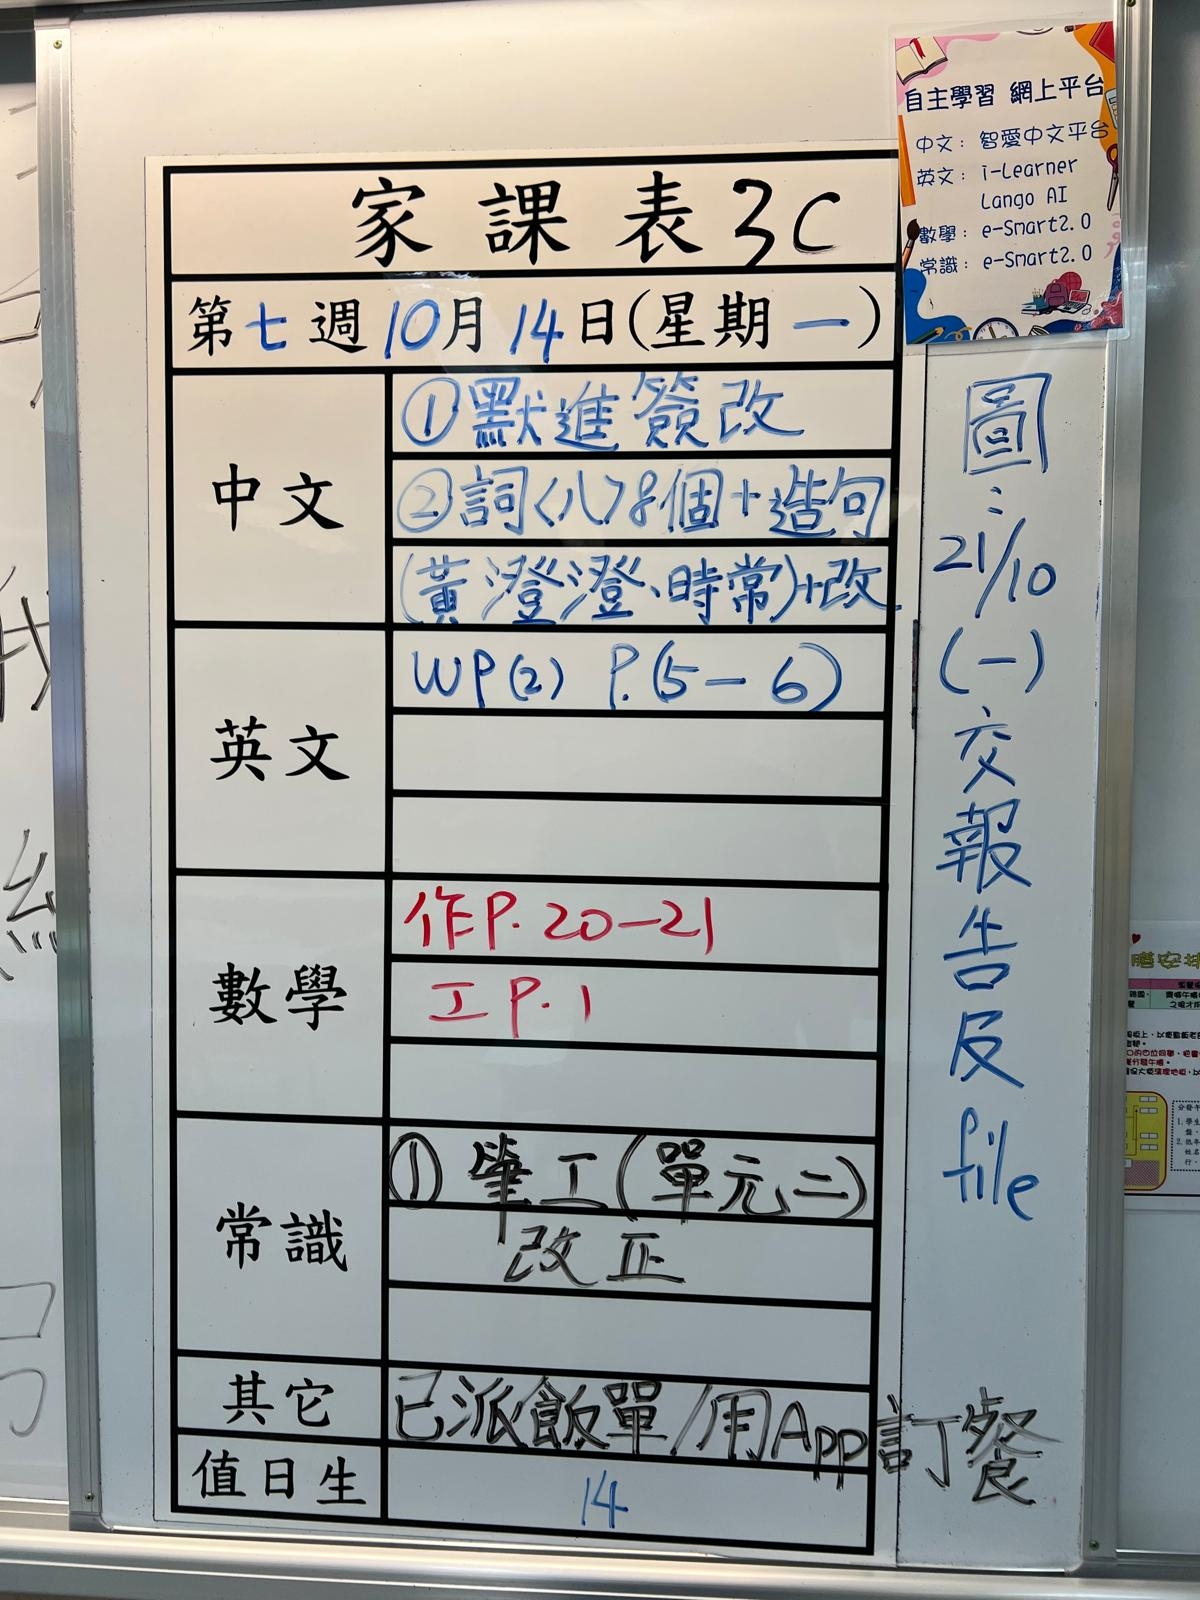 家課表3C
第七週10月14日(星期一)
中文
①默進簽改
②詞〈八〉8個+造句
(黃澄澄、時常)+改
英文
WP(2) P.(5-6)
數學
作P.20-21
工P.1
常識
①筆工(單元二)
改正
其它
已派飯單/用App訂餐
值日生
14
自主學習 網上平台
中文：智愛中文平台
英文：i-Learner
Lango AI
數學：e-Smart2.0
常識：e-Smart2.0
圖：
21/10
(一)
交報告及
file